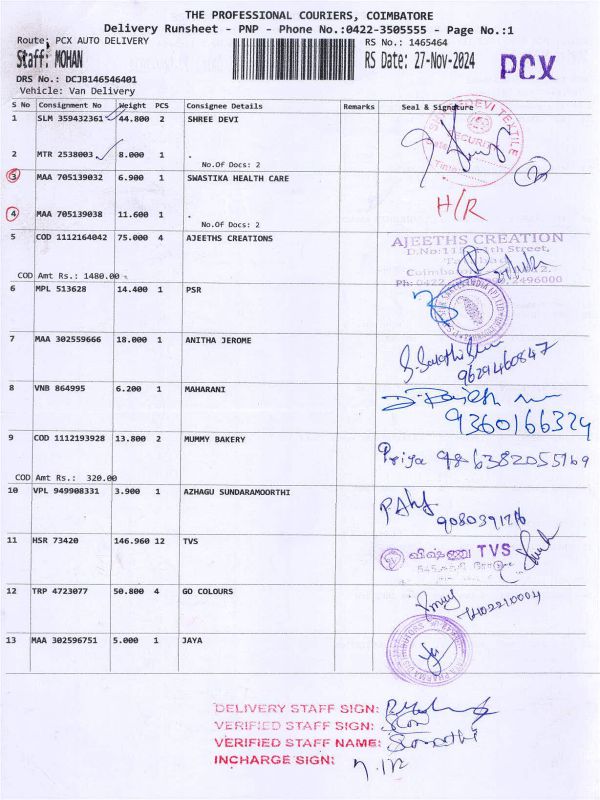 THE PROFESSIONAL COURIERS, COIMBATORE
Delivery Runsheet - PNP - Phone No.:0422-3505555 - Page No.:1
Route: PCX AUTO DELIVERY RS No.: 1465464
Staff: MOHAN RS Date: 27-Nov-2024 PCX
DRS No.: DCJB146546401
Vehicle: Van Delivery
S No Consignment No Weight PCS Consignee Details Remarks Seal & Signature
1 SLM 359432361 44.800 2 SHREE DEVI
2 MTR 2538003 8.000 1 .
No.Of Docs: 2
SECURITY
3 MAA 705139032 6.900 1 SWASTIKA HEALTH CARE
H/R
4 MAA 705139038 11.600 1 .
No.Of Docs: 2
5 COD 1112164042 75.000 4 AJEETHS CREATIONS
AJEETHS CREATION
COD Amt Rs.: 1480.00
6 MPL 513628 14.400 1 PSR
7 MAA 302559666 18.000 1 ANITHA JEROME
9629460847
8 VNB 864995 6.200 1 MAHARANI
9360166324
9 COD 1112193928 13.800 2 MUMMY BAKERY
Priya 6382055169
COD Amt Rs.: 320.00
10 VPL 949908331 3.900 1 AZHAGU SUNDARAMOORTHI
11 HSR 73420 146.960 12 TVS
விஷ்ணு TVS
12 TRP 4723077 50.800 4 GO COLOURS
13 MAA 302596751 5.000 1 JAYA
DELIVERY STAFF SIGN:
VERIFIED STAFF SIGN:
VERIFIED STAFF NAME:
INCHARGE SIGN: